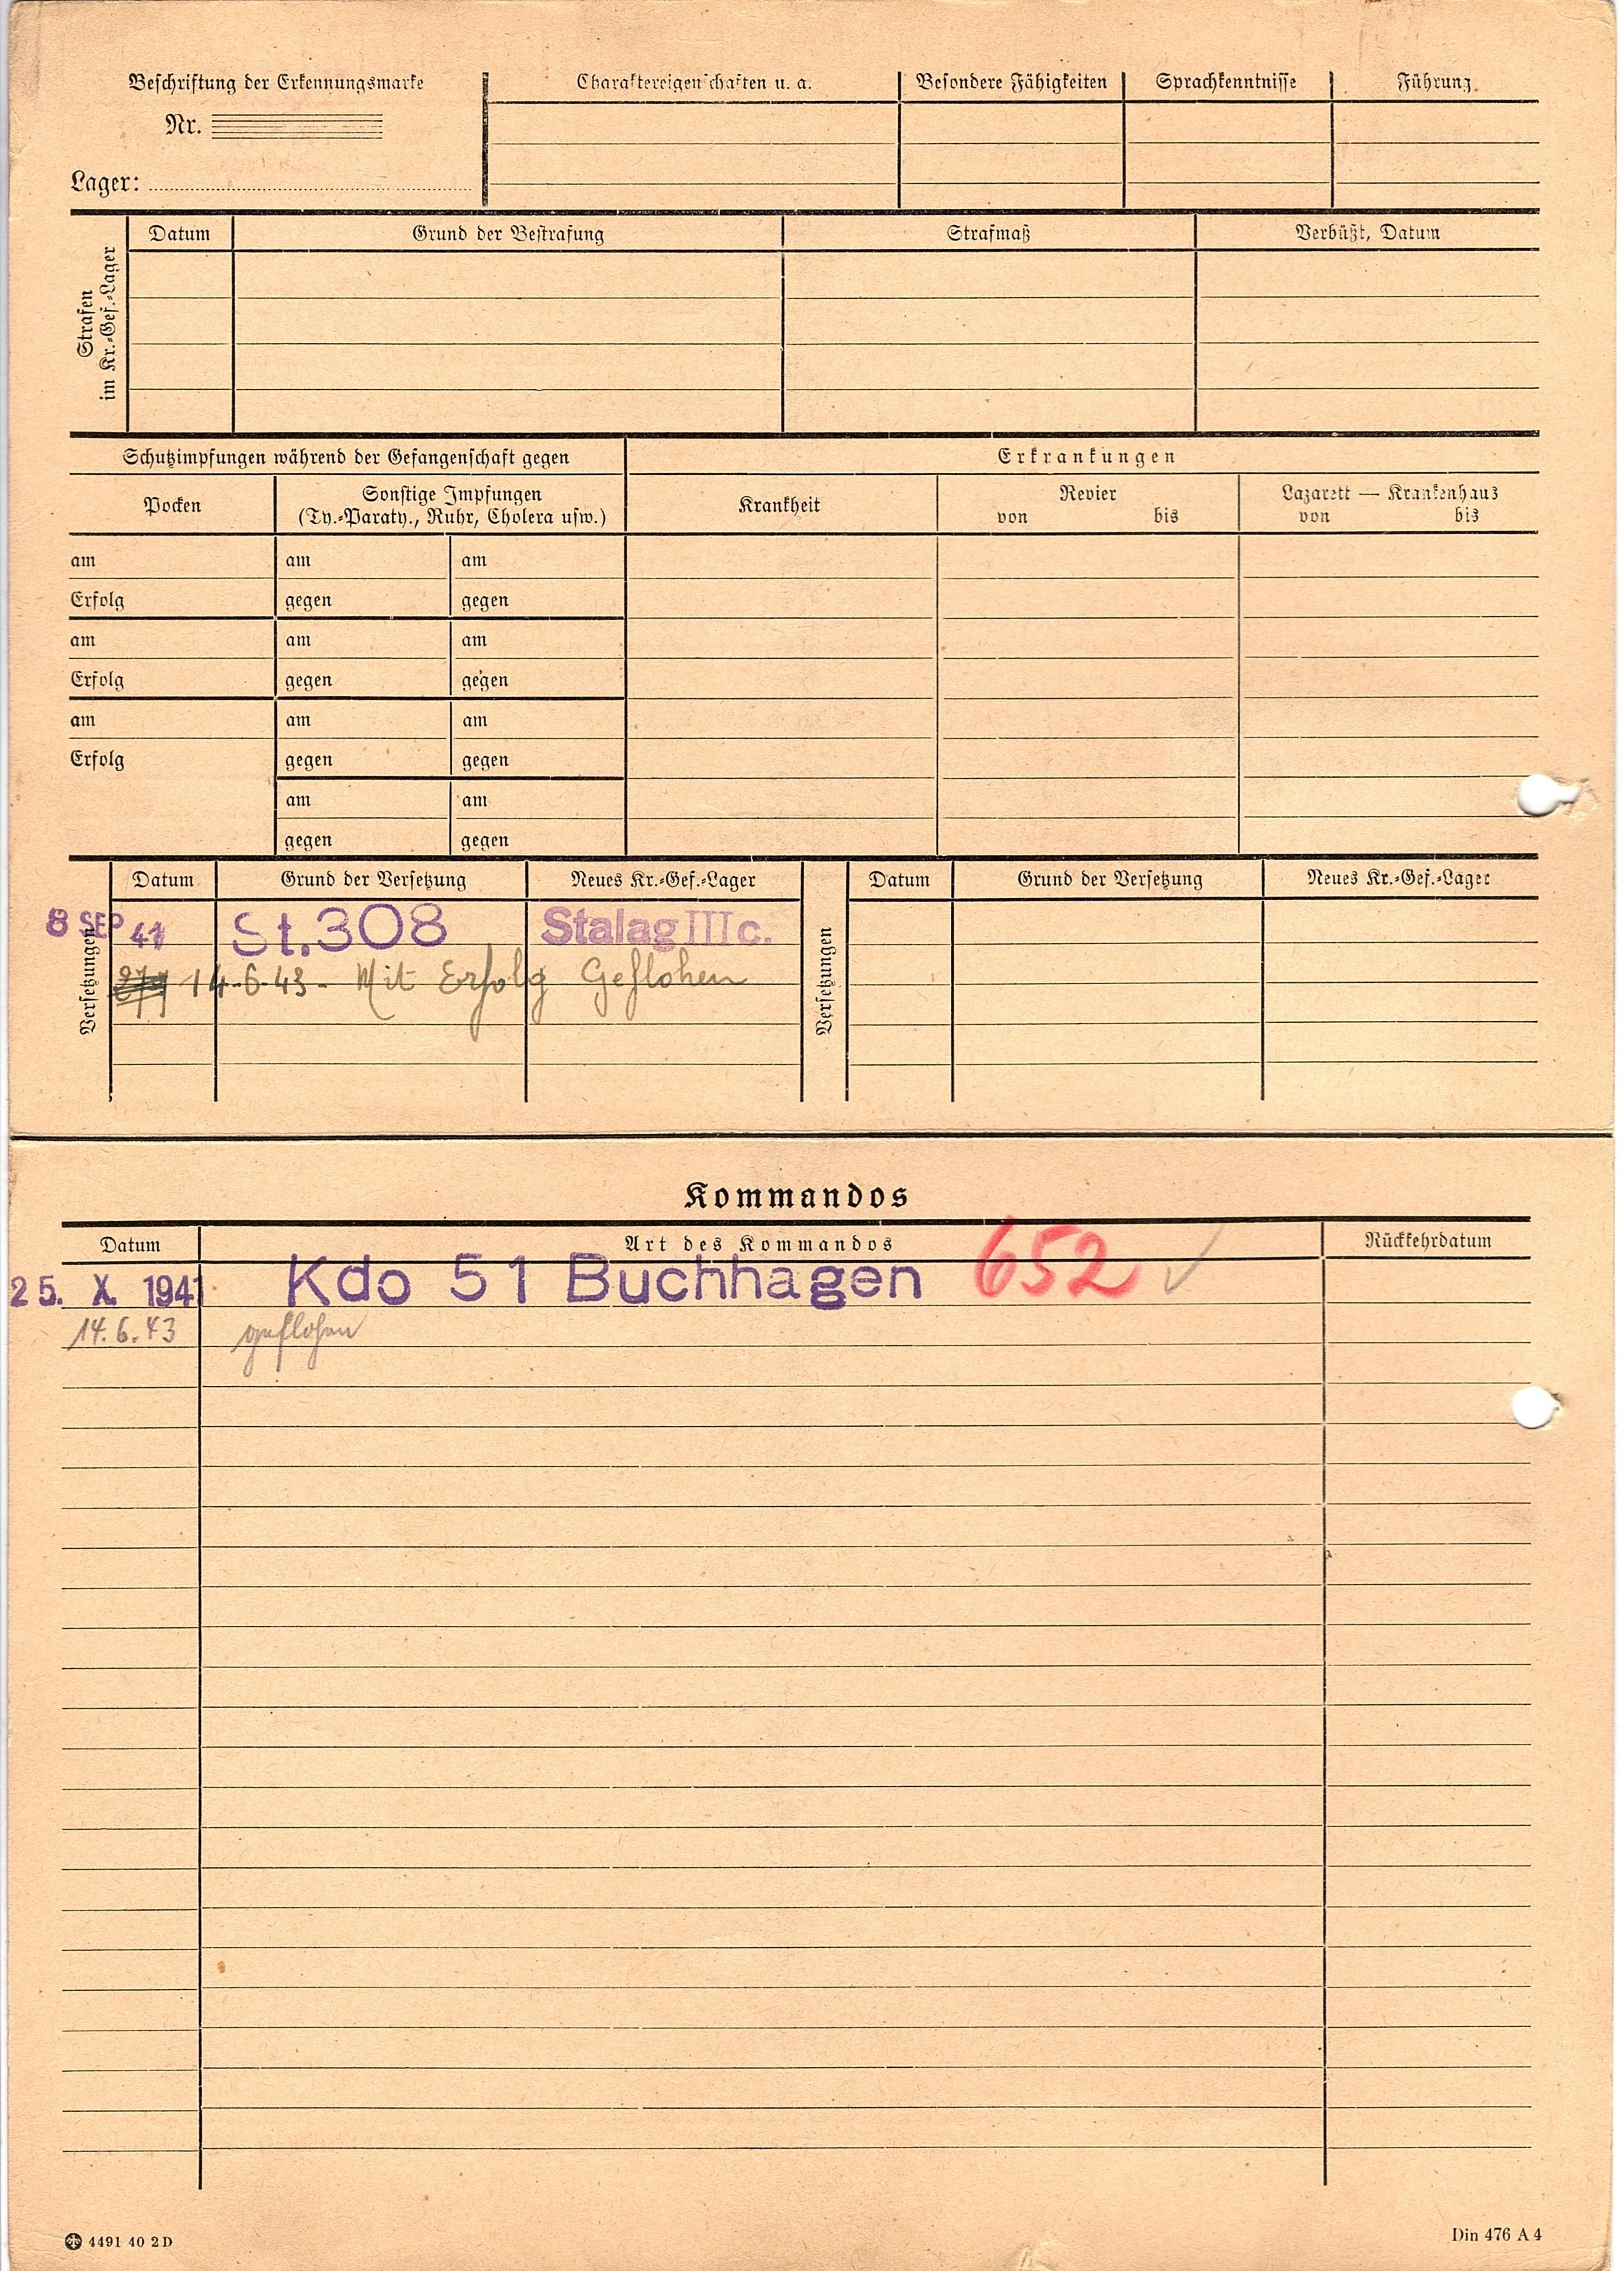 Beschriftung der Erkennungsmarke
Nr.
Lager:
Charaktereigenschaften u. a.
Besondere Fähigkeiten
Sprachkenntnisse
Führung
Strafen
im Kr.-Gef.-Lager
Datum Grund der Bestrafung Strafmaß Verbüßt, Datum
Schutzimpfungen während der Gefangenschaft gegen Erkrankungen
Pocken
Sonstige Impfungen
(Ty.-Paraty., Ruhr, Cholera usw.)
Krankheit
Revier
von bis
Lazarett — Krankenhaus
von bis
am am am
Erfolg gegen gegen
am am am
Erfolg gegen gegen
am am am
Erfolg gegen gegen
am am
gegen gegen
Versetzungen
Datum Grund der Versetzung Neues Kr.-Gef.-Lager
8 SEP 41 St.308 Stalag III c.
14-6-43- Mit Erfolg Geflohen
Versetzungen
Datum Grund der Versetzung Neues Kr.-Gef.-Lager
Kommandos
Datum Art des Kommandos Rückkehrdatum
25. X. 1941 Kdo 51 Buchhagen 652
14.6.43 geflohen
4491 40 2 D
Din 476 A 4